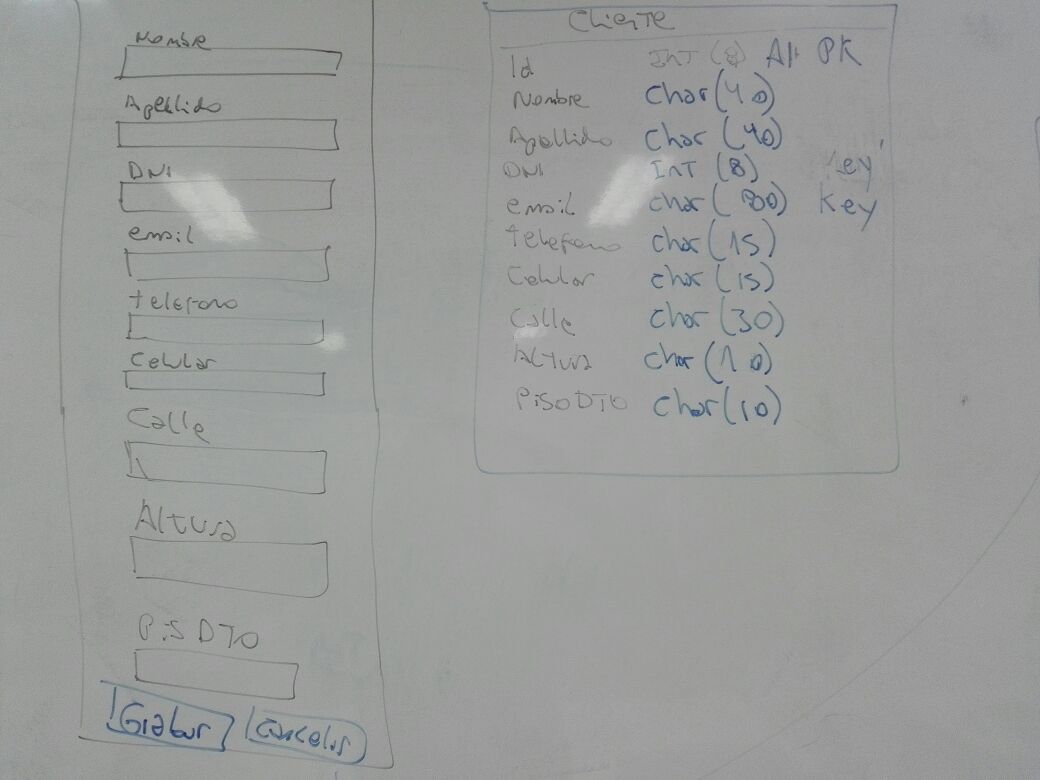 Nombre
Apellido
DNI
email
telefono
Celular
Calle
Altura
PiSDTO
Grabar Cancelar
Cliente
Id InT (8) AI PK
Nombre Char(40)
Apellido Char (40)
DNI InT (8) key
email char( ) key
telefono char(15)
Celular char(15)
Calle char(30)
Altura char(10)
PiSODTO char(10)